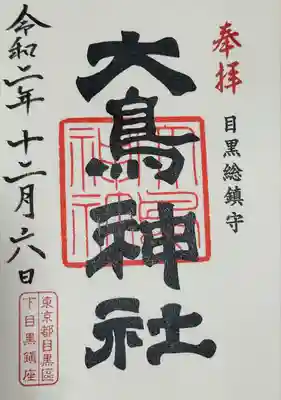 奉拝
目黒総鎮守
大鳥神社
令和二年十二月六日
東京都目黒區
下目黒鎮座